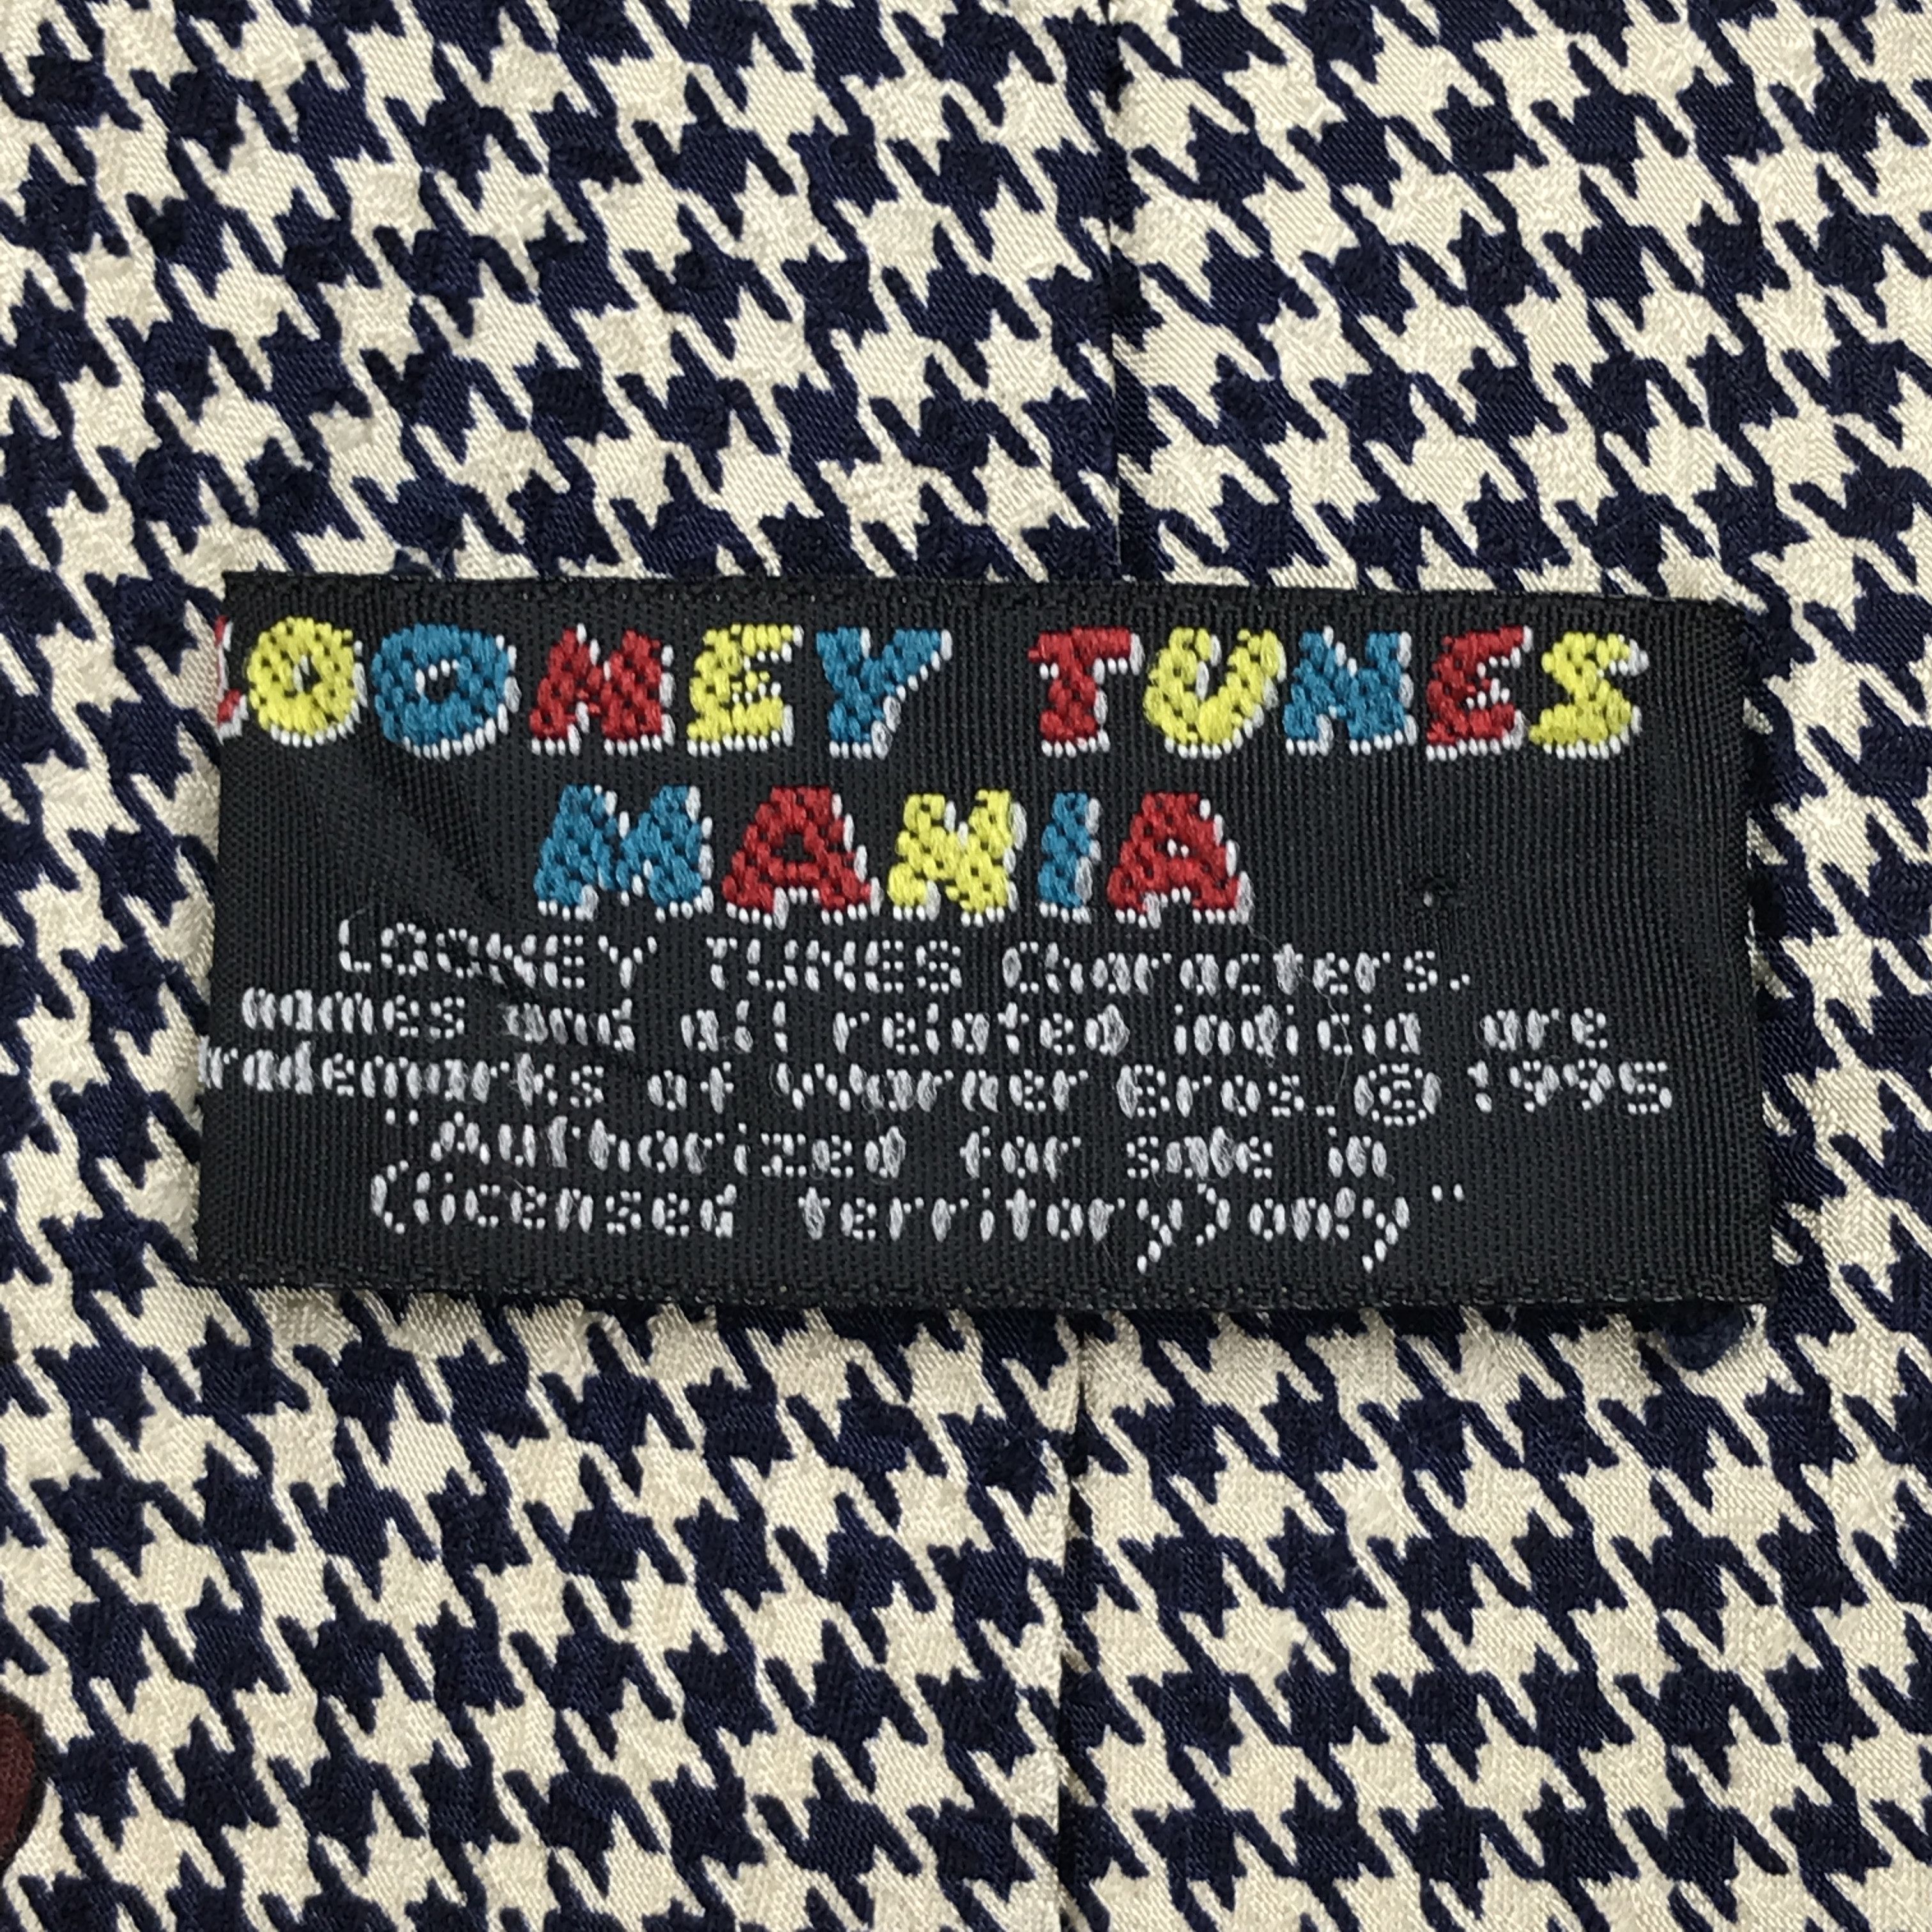 LOONEY TUNES
MANIA
LOONEY TUNES Characters.
names and all related indicia are
trademarks of Warner Bros. © 1995
"Authorized for sale in
(licensed territory) only"